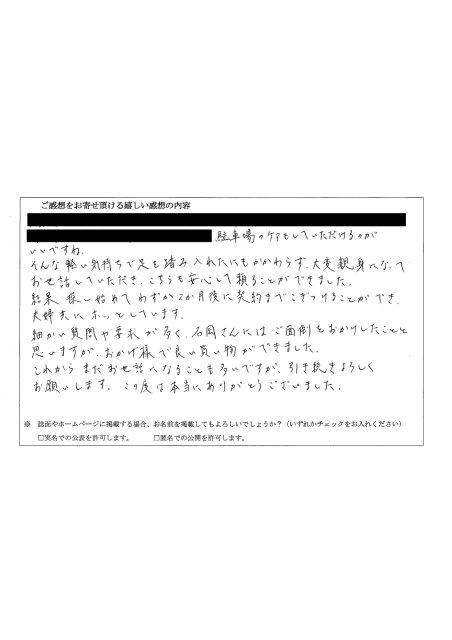 ご感想をお寄せ頂ける嬉しい感想の内容
駐車場のケアもしていただけるのが
いいですね。
そんな軽い気持ちで足を踏み入れたにもかかわらず、大変親身になって
お世話していただき、こちらも安心して頼ることができました。
結果、探し始めてわずか2か月後に契約までこぎつけることができ、
夫婦共にホッとしています。
細かい質問や要求が多く、石岡さんにはご面倒をおかけしたことと
思いますが、おかげ様で良い買い物ができました。
これからまだお世話になることも多いですが、引き続きよろしく
お願いします。この度は本当にありがとうございました。
※ 誌面やホームページに掲載する場合、お名前を掲載してもよろしいでしょうか?(いずれかチェックをお入れください)
□実名での公表を許可します。 □匿名での公開を許可します。